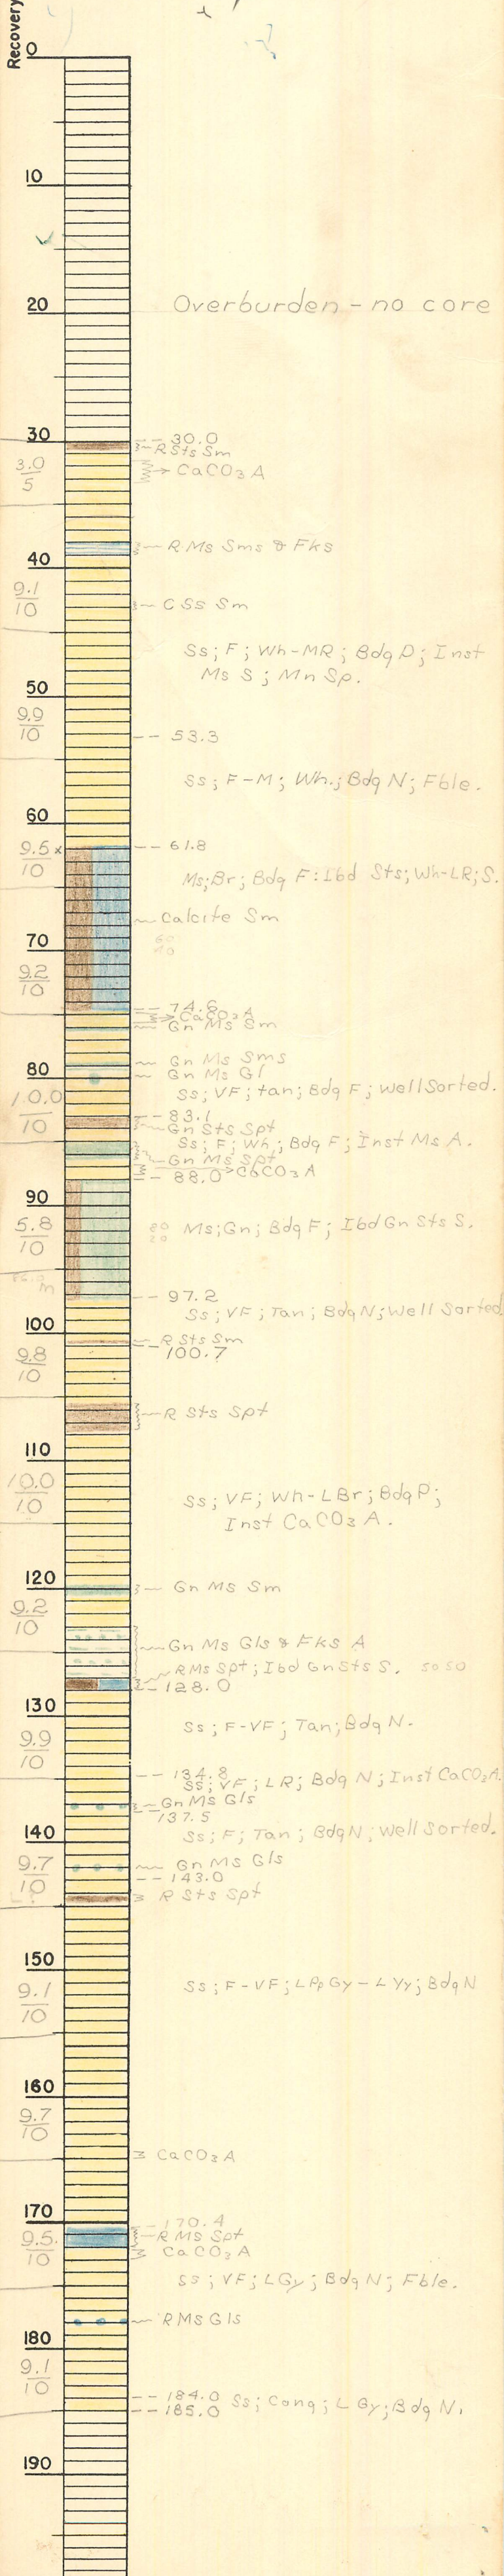 Recovery
0
10
20
Overburden - no core
30
30.0
R Sts Sm
3.0
5
CaCO3 A
R Ms Sms & Fks
40
9.1
10
C Ss Sm
Ss; F; Wh-MR; Bdg P; Inst
Ms S; Mn Sp.
50
9.9
10
53.3
Ss; F-M; Wh.; Bdg N; Fble.
60
9.5 x
10
61.8
Ms; Br; Bdg F: Ibd Sts; Wh-LR; S.
Calcite Sm
60
40
70
9.2
10
74.6
CaCO3 A
Gn Ms Sm
Gn Ms Sms
Gn Ms Gl
80
Ss; VF; tan; Bdg F; Well Sorted.
10.0
10
83.1
Gn Sts Spt
Ss; F; Wh; Bdg F; Inst Ms A.
Gn Ms Spt
CaCO3 A
88.0
90
5.8
10
80
20
Ms; Gn; Bdg F; Ibd Gn Sts S.
m
97.2
Ss; VF; Tan; Bdg N; Well Sorted
100
R Sts Sm
100.7
9.8
10
R Sts Spt
110
10.0
10
Ss; VF; Wh-LBr; Bdg P;
Inst CaCO3 A.
120
Gn Ms Sm
9.2
10
Gn Ms Gls & Fks A
R Ms Spt; Ibd Gn Sts S. 50 50
128.0
130
Ss; F-VF; Tan; Bdg N.
9.9
10
134.8
Ss; VF; LR; Bdg N; Inst CaCO3 A.
Gn Ms Gls
137.5
Ss; F; Tan; Bdg N; Well Sorted.
140
9.7
10
Gn Ms Gls
143.0
R Sts Spt
150
Ss; F-VF; LPp Gy - L Yy; Bdg N
9.1
10
160
9.7
10
CaCO3 A
170
170.4
R Ms Spt
9.5.
10
CaCO3 A
Ss; VF; LGy; Bdg N; Fble.
R Ms Gls
180
9.1
10
184.0
Ss; Cong; L Gy; Bdg N.
185.0
190